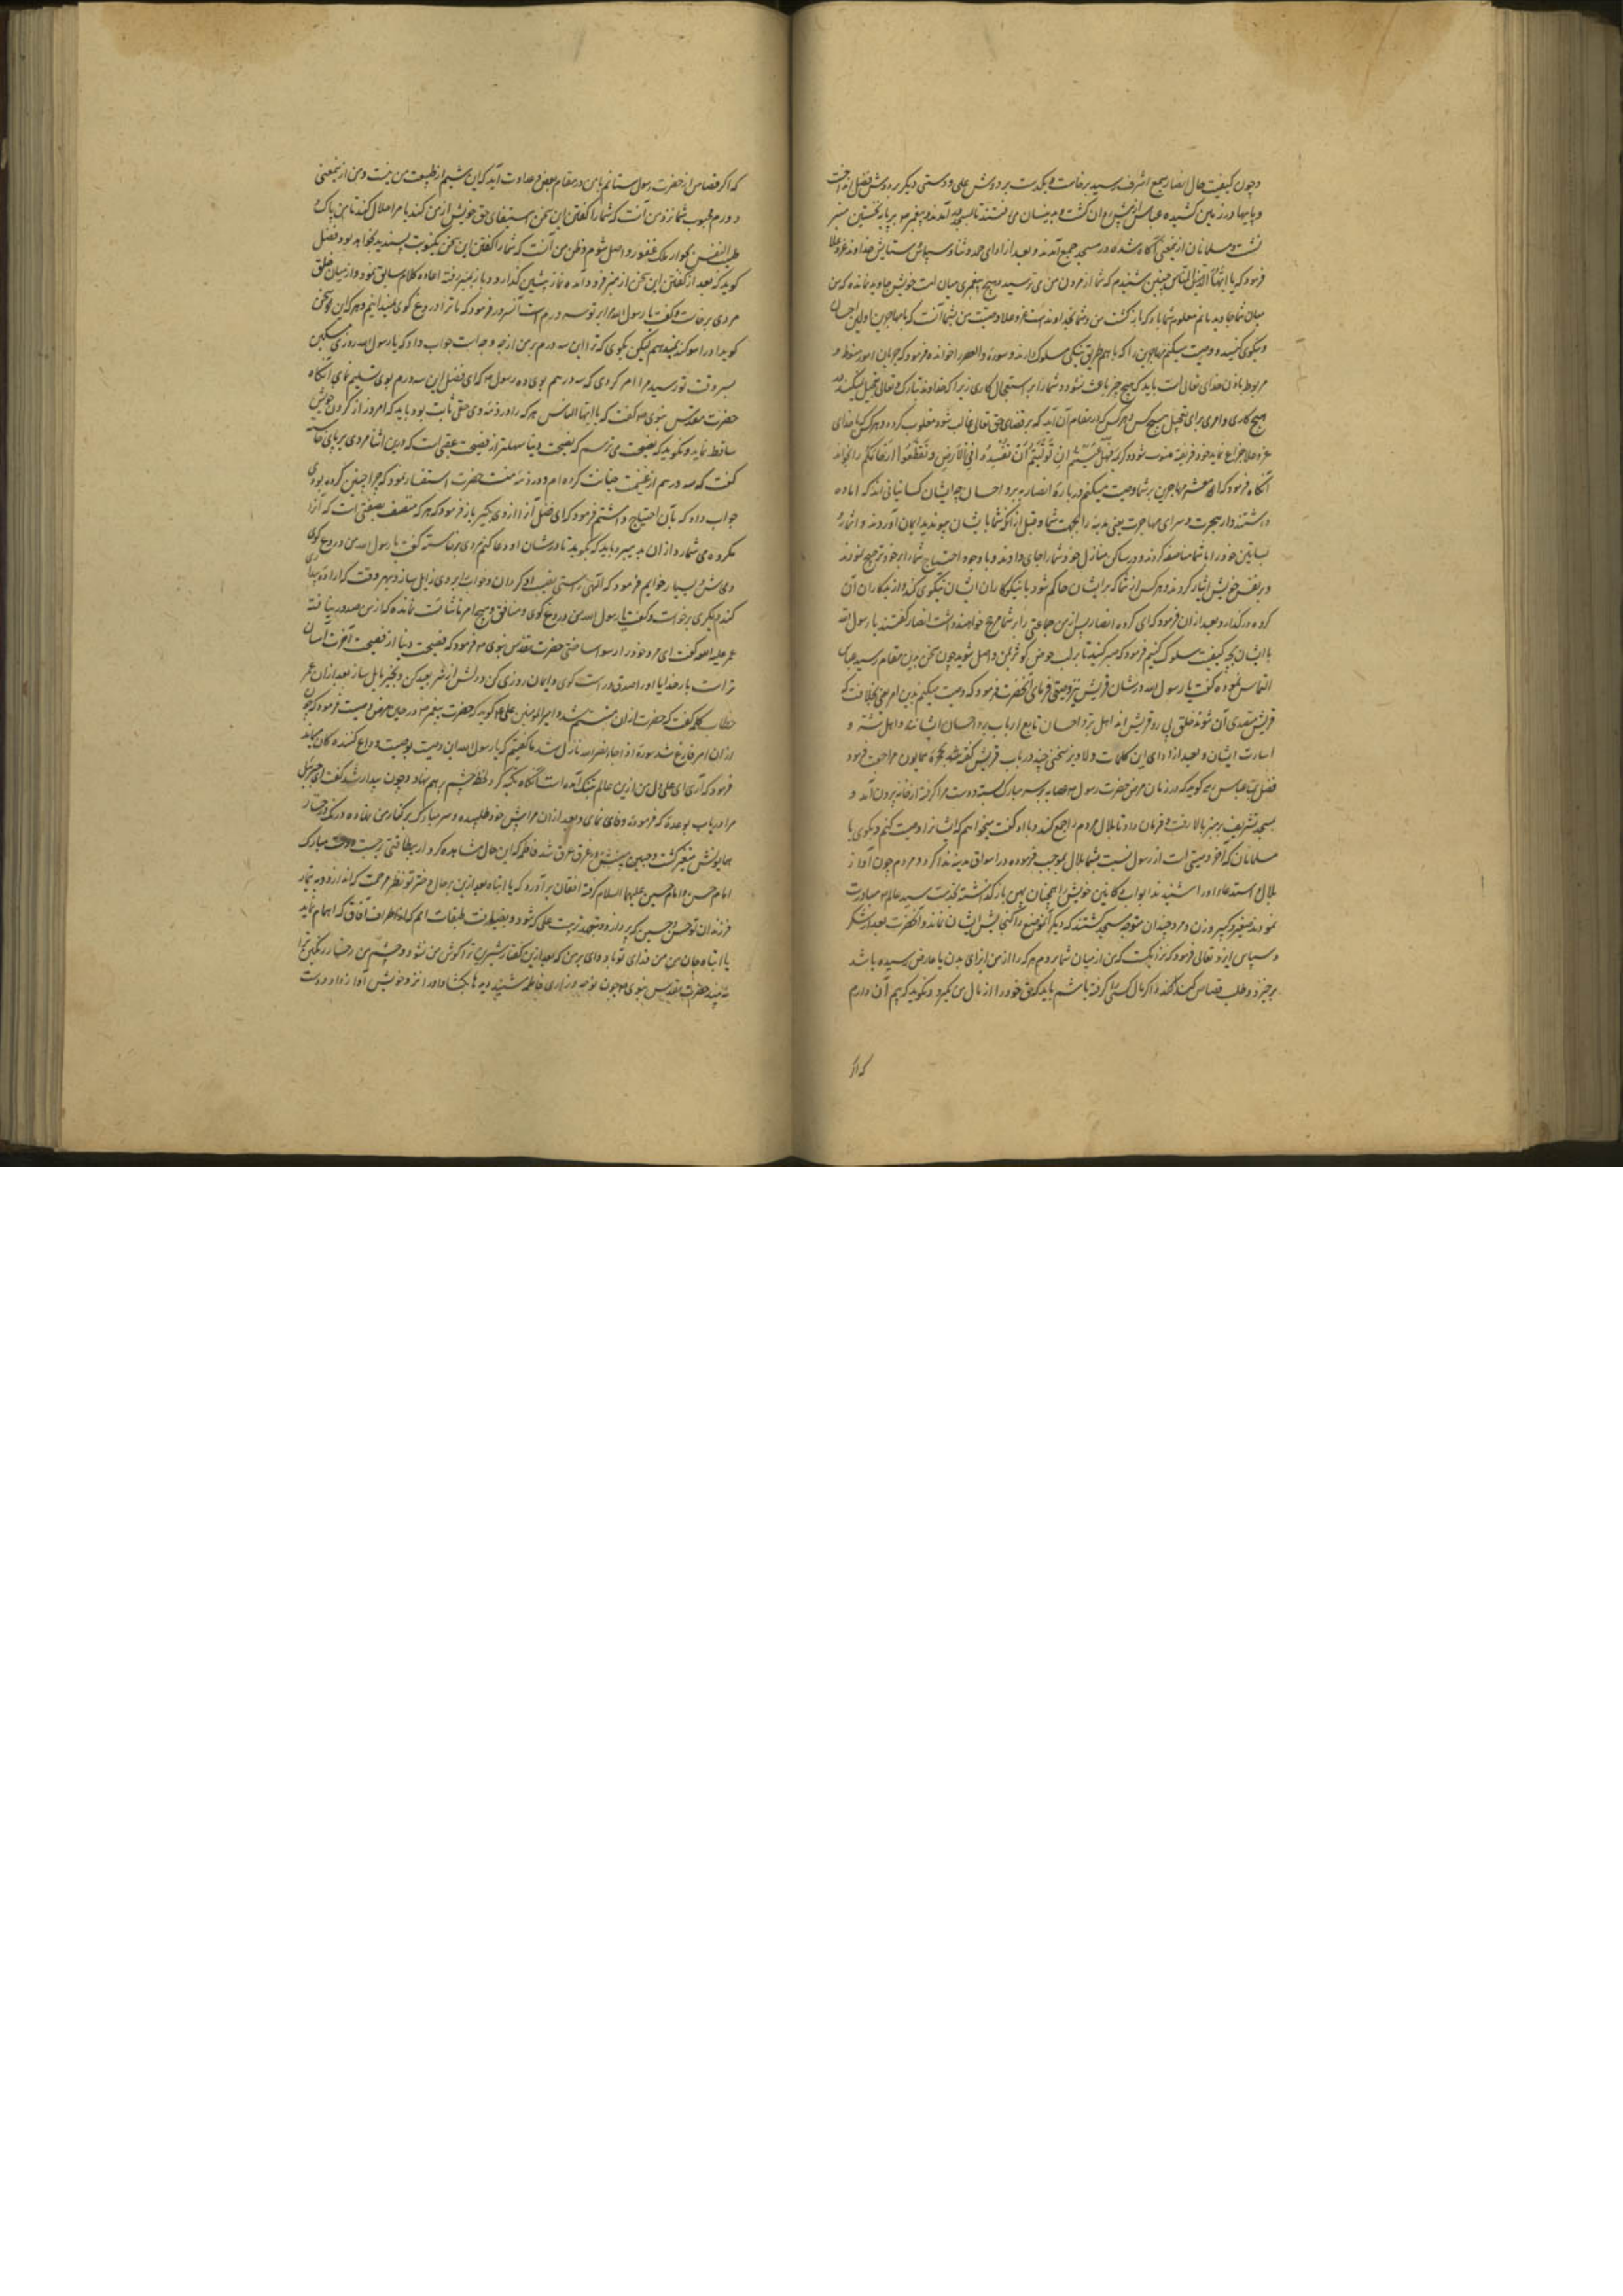 و چون کیفیت حال انصار بسمع اشرف رسید برخاست و یکدست بر دوش علی و دستی دیگر بر دوش فضل انداخت
و پایها در زمین کشیده عباس از پیش روان گشت و بدینسان می رفتند تا بمسجد آمدند و پیغمبر بر پایه نخستین منبر
نشست و مسلمانان ازینمعنی آگاه شده در مسجد جمع آمدند و بعد از ادای حمد و ثنا و سپاس و ستایش خداوند عز و علا
فرمود که یا ایها الناس چنین شنیدم که شما از مردن من می ترسید هیچ پیغمبری میان امت خویش جاوید نمانده که من
میان شما جاوید بمانم معلوم شما باد که بازگشت من و شما بخداوند است عز و علا و وصیت من بشما آنست که با مهاجرین اولین احسان
و نیکوی کنید و وصیت میکنم مهاجرین را که با هم طریق نیکی مسلوک دارند و سوره والعصر را خوانده فرمود که جریان امور منوط و
مربوط باذن خدای تعالی است باید که هیچ چیز باعث نشود و شما را بر استعجال کاری زیرا که خداوند تبارک و تعالی تعجیل نمیکند در
هیچ کاری و امری برای تعجیل هیچ کس و هر کس که در مقام آن آید که بر قضای حق تعالی غالب شود مغلوب گردد و هر کس که با خدای
عز و علا خداع نماید خود فریفته شود و کریمه فهل عسیتم ان تولیتم ان تفسدوا فی الارض و تقطعوا ارحامکم را بخواند
آنگاه فرمود که ای معشر مهاجرین بر شما وصیت میکنم درباره انصار به بر و احسان چه ایشان کسانی اند که آماده
داشتند دار هجرت و سرای مهاجرت یعنی مدینه را بجهت شما و قبل از آنکه شما بایشان پیوندید ایمان آوردند و اثمار
بساتین خود را با شما مناصفه کردند و در مساکن و منازل خود شما را جای دادند و با وجود احتیاج شما را بر خود ترجیح نمودند
و بر نفس خویش ایثار کردند و هر کس از شما که بر ایشان حاکم شود با نیکوکاران ایشان نیکوی کند و از بدکاران آن
گروه درگذرد و بعد از آن فرمود که ای گروه انصار پس از من جماعتی را بر شما مرجح خواهند داشت انصار گفتند یا رسول الله
با ایشان بچه کیفیت سلوک کنیم فرمود که صبر کنید تا بر لب حوض کوثر بمن واصل شوید چون سخن بدین مقام رسید عباس
التماس نموده گفت یا رسول الله در شان قریش نیز وصیتی فرمای آنحضرت فرمود که وصیت میکنم بدین امر یعنی خلافت که
قریش متصدی آن شوند خلق پی رو قریش اند اهل بر و احسان تابع ارباب بر و احسان ایشانند و اهل
اساءت ایشان و بعد از ادای این کلمات و لادیز سخنی چند در باب قریش گفته بحجره همایون مراجعت فرمود
فضل بن عباس گوید که در زمان مرض حضرت رسول عصابه بر سر مبارک بسته دست مرا گرفته از خانه بیرون آمد و
بمسجد تشریف برد بر منبر بالا رفت و فرمان داد تا بلال مردم را جمع کند و با او گفت میخواهم که ایشانرا وصیت کنم و بگوی با
مسلمانان که آخر وصیتی است از رسول نسبت بشما بلال بموجب فرموده در اسواق مدینه ندا کرد و مردم چون آواز
بلال و استدعا او را شنیدند ابواب دکاکین خویش را همچنان باز گذاشته بخدمت سید عالم مبادرت
نمودند صغیر و کبیر و زن و مرد چندان متوجه مسجد گشتند که دیگر آن موضع را گنجایش ایشان نماند و آنحضرت بعد از شکر
و سپاس ایزد تعالی فرمود که نزدیکست که من از میان شما بروم هر که را از من ایذای بدن یا عارض رسیده باشد
برخیزد و طلب قصاص کند و اگر مال کسی گرفته باشم باید که حق خود را از مال من بگیرد و نگوید که بیم آن دارم
که اگر
که اگر قصاص از حضرت رسول ستانم با من در مقام بغض و عداوت آید که این شیم از طبیعت من نیست و من ازینمعنی
دورم محبوب شما نزد من آنست که شما را گفتن این سخن استیفای حق خویش از من کند یا مرا حلال کند تا من پاک و
طیب النفس بجوار ملک غفور واصل شوم و ظن من آنست که شما را گفتن این سخن یکنوبت بسنده نخواهد بود فضل
گوید که بعد از گفتن این سخن از منبر فرود آمده نماز پیشین گذارد و باز بمنبر رفته اعاده کلام سابق نمود و از میان خلق
مردی برخاست و گفت یا رسول الله مرا بر تو سه درم است آنسرور فرمود که ما ترا دروغ گوی نمیدانیم و هر که این سخن
گوید او را سوگند نمیدهیم لیکن بگوی که ترا این سه درم بر من از چه وجه است جواب داد که یا رسول الله روزی مسکین
بسر وقت تو رسید مرا امر کردی که سه درهم بوی ده رسول گفت ای فضل این سه درم بوی تسلیم نمای آنگاه
حضرت مقدس نبوی گفت که یا ایها الناس هر که را در ذمه وی حقی ثابت بود باید که امروز از گردن خویش
ساقط نماید و نگوید که از فضیحت می ترسم که فضیحت دنیا سهلتر از فضیحت عقبی است که درین اثنا مردی بر پای خاسته
گفت که سه درهم از غنیمت خیانت کرده ام و در ذمه منست حضرت استفسار نمود که چرا چنین کرده بودی
جواب داد که بآن احتیاج داشتم فرمود که ای فضل آنرا از وی بگیر باز فرمود که هر که متصف بصفتی است که آنرا
مکروه می شمارد و از آن بد میبرد باید که بگوید تا در شان او دعا کنم مردی برخاسته گفت یا رسول الله من دروغ گوی
و بسیار خوابم فرمود که الهی راستی نصیب او گردان و خواب از وی زایل ساز و هر وقت که اراده بیداری
کند دیگری برخاست و گفت یا رسول الله من دروغ گوی و منافق و هیچ امر ناشایست نمانده که از من صدور نیافته
عمر علیه گفت ای مرد خود را رسوا ساختی حضرت مقدس نبوی فرمود که فضیحت دنیا از فضیحت آخرت آسان
تر است بار خدایا او را صدق و راست گوی و ایمان روزی کن و دلش از شر بعید کن و بخیر مایل ساز بعد از آن عمر
خطاب کلمه گفت که حضرت از آن متبسم شد و امیرالمومنین علی گوید که حضرت پیغمبر در حین مرض وصیت فرمود که چون
از آن امر فارغ شد سوره اذا جاء نصر الله نازل شد ما گفتیم که یا رسول الله این وصیت بوصیت وداع کننده گان میماند
فرمود که آری ای علی دل من ازین عالم بتنگ آمده است آنگاه تکیه کرد و لحظه چشم بر هم نهاد و چون بیدار شد گفت ای جبرئیل
مرا دریاب بوعده که فرموده وفای نمای و بعد از آن مرا پیش خود طلبیده و سر مبارک بر کنار من نهاده و رنگ رخسار
همایونش متغیر گشت و جبین در عرق غرق شد فاطمه که این حال مشاهده کرد از بیطاقتی برجست و دست مبارک
امام حسن و امام حسین علیهما السلام گرفته افغان برآورد که یا ابتاه بعد ازین بر حال دختر تو نظر مرحمت که اندازد و به تیمار
فرزندان تو حسن و حسین که پردازد و متعهد تربیت علی که شود و بضیافت طبقات امم که از اطراف آفاق که اهمام نماید
یا ابتاه جان من فدای تو باد وای بر من که بعد ازین گفتار شیرین ترا گوش من نشنود و چشم من رخسار رنگین ترا
نه بیند حضرت مقدس نبوی چون نوحه و زاری فاطمه شنید دیدها بگشاد و او را نزد خویش آواز داد و دست